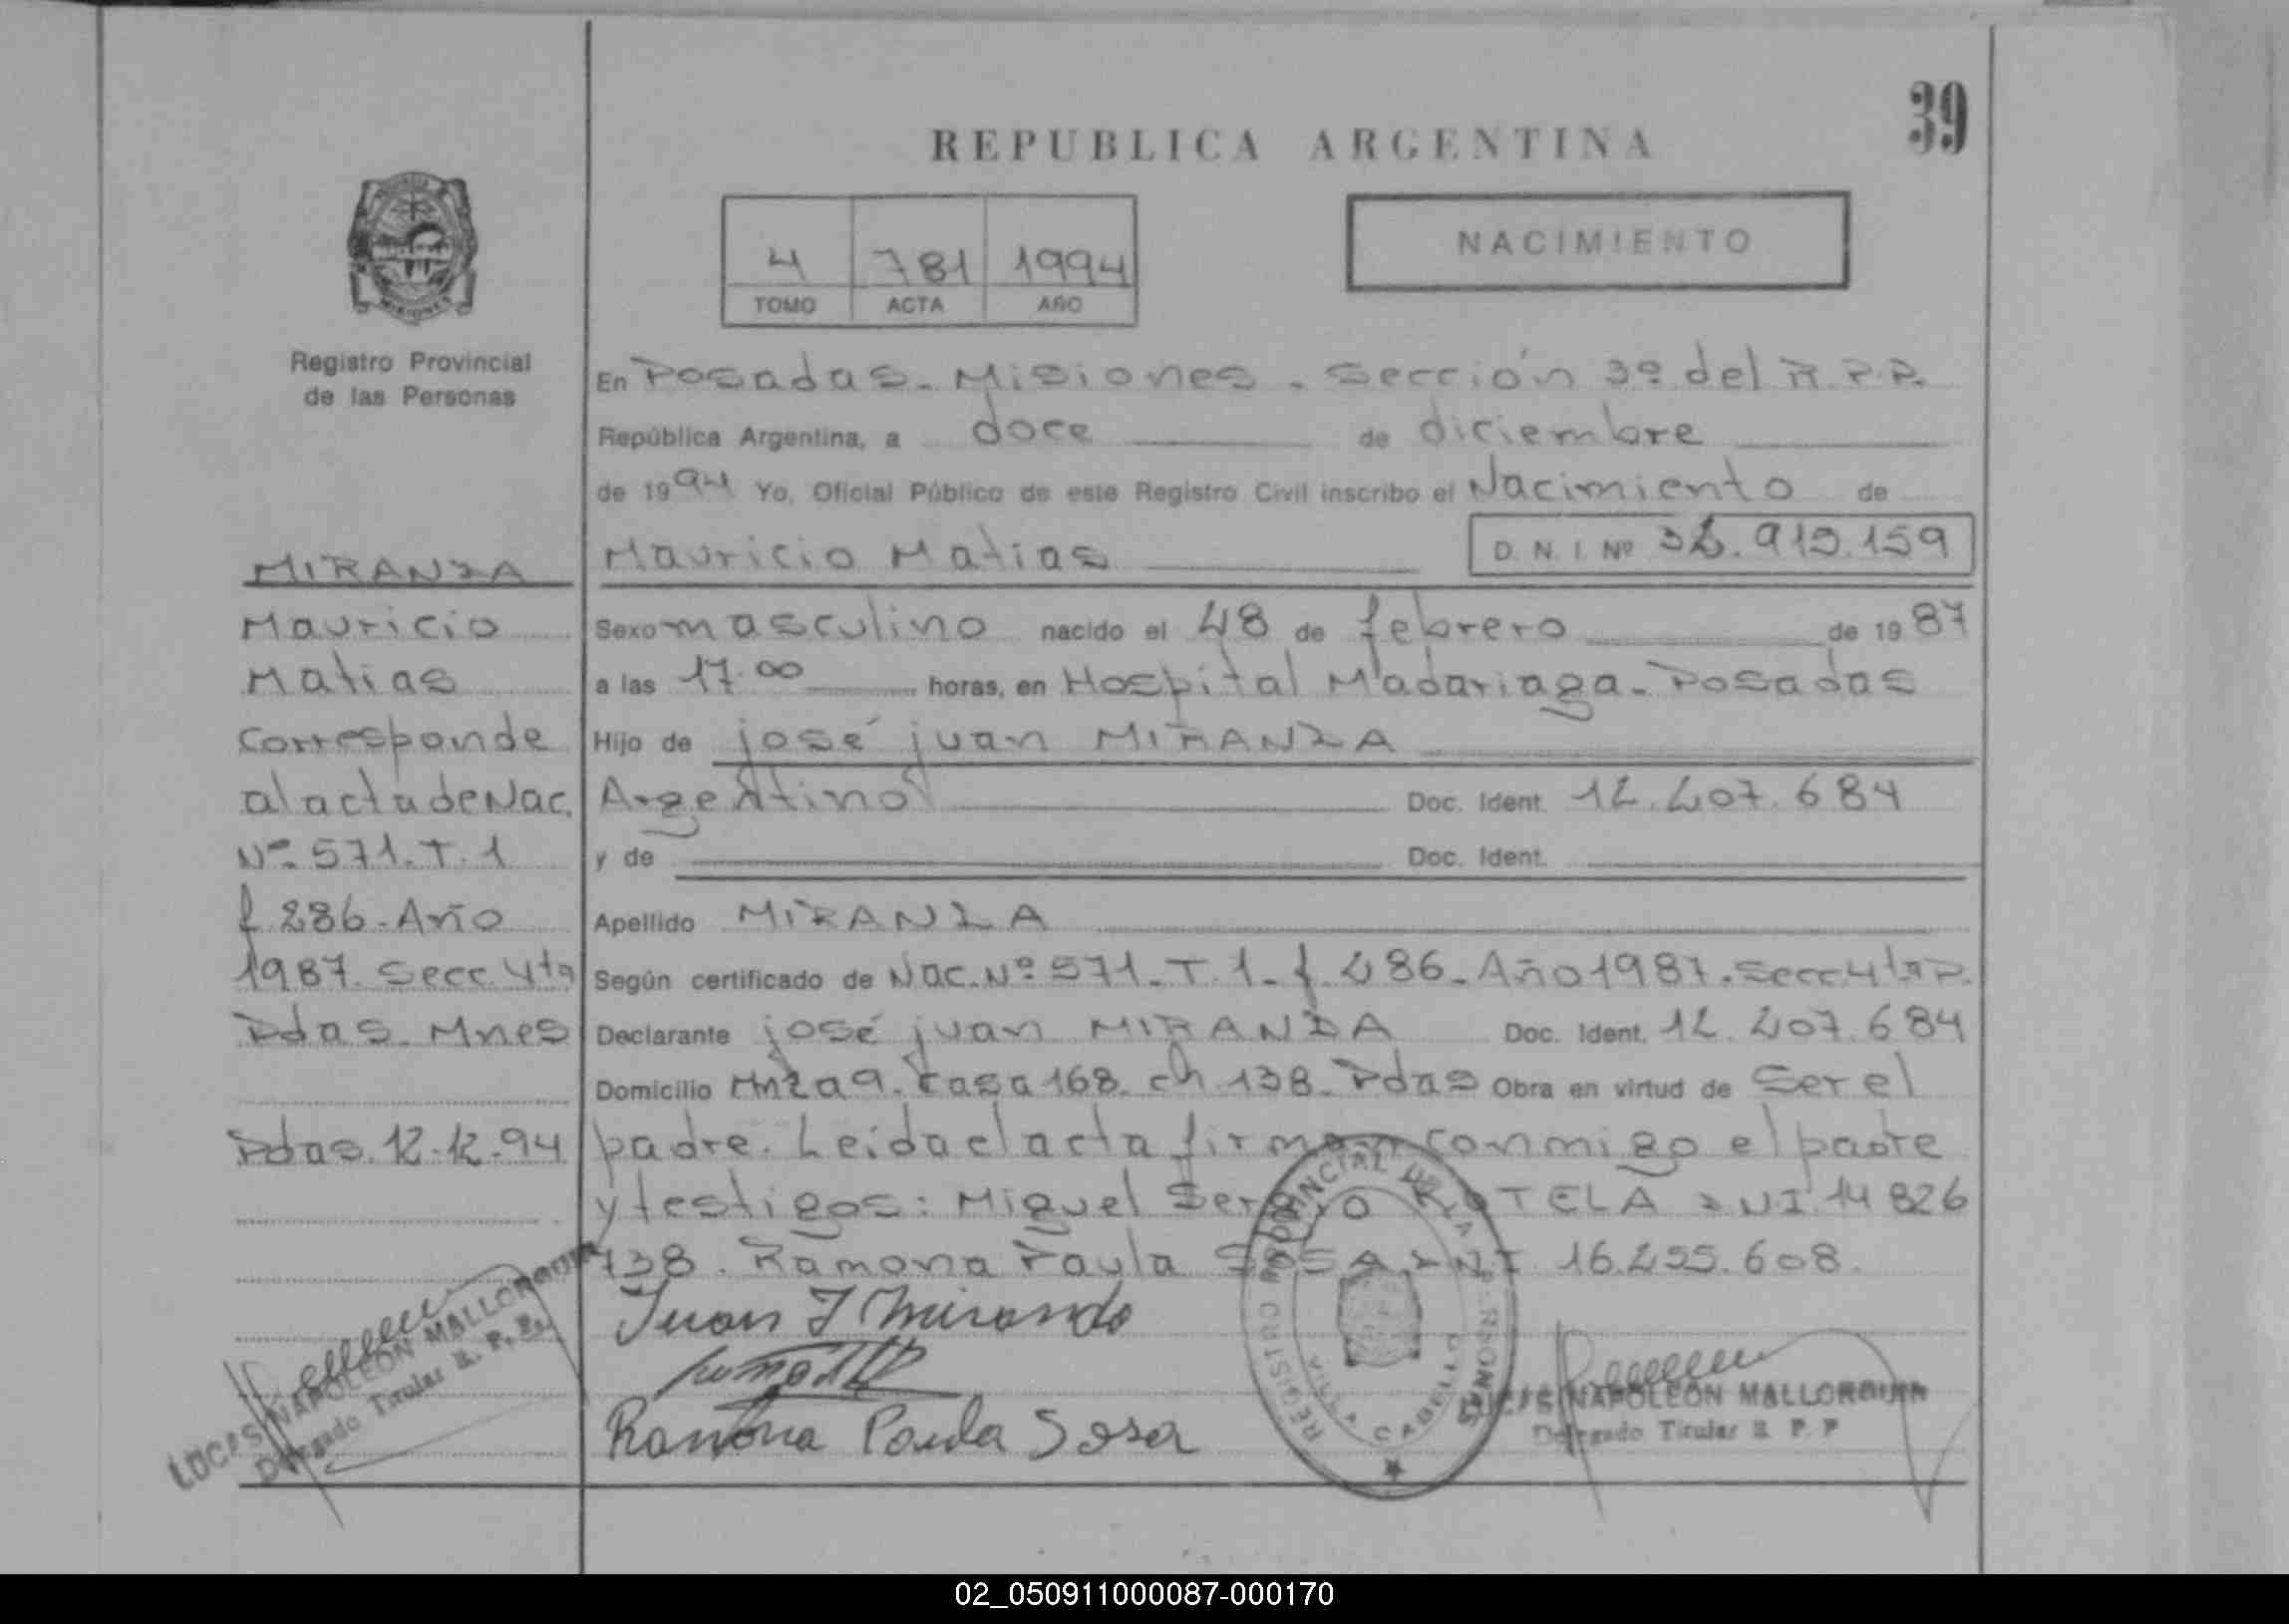 39
REPUBLICA ARGENTINA
4 781 1994
TOMO ACTA AÑO
NACIMIENTO
MISIONES
Registro Provincial
de las Personas
En Posadas. Misiones. Sección 3º del R.P.P.
República Argentina, a doce de diciembre
de 1994 Yo, Oficial Público de este Registro Civil inscribo el Nacimiento de
Mauricio Matias D. N. I. Nº
Sexo masculino nacido el de febrero de 1987
a las 17.00 horas, en Hospital Madariaga. Posadas
Hijo de josé juan MIRANDA
Argentino Doc. Ident. 12.207.684
y de Doc. Ident.
Apellido MIRANDA
Según certificado de Nac. Nº 571. T. 1. f. 286. Año 1987. Secc 4ta P.
Declarante josé juan MIRANDA Doc. Ident. 12.207.684
Domicilio Mnza 9. Casa 168. ch. 138. Pdas Obra en virtud de Ser el
padre. Leida el acta firman conmigo el padre
y testigos: Miguel Sergio KOTELA DNI 14 826
738. Ramona Paula SOSA DNI 16.255.608.
Juan J Miranda
Ramona Paula Sosa
LUCAS NAPOLEON MALLORQUIN
Delegado Titular R. P. P.
MIRANDA
Mauricio
Matias
Corresponde
al acta de Nac.
Nº 571. T. 1
f 286. Año
1987. Secc. 4ta
Pdas. Mnes
Pdas. 12.12.94
LUCAS NAPOLEON MALLORQUIN
Delegado Titular R. P. P.
02_050911000087-000170